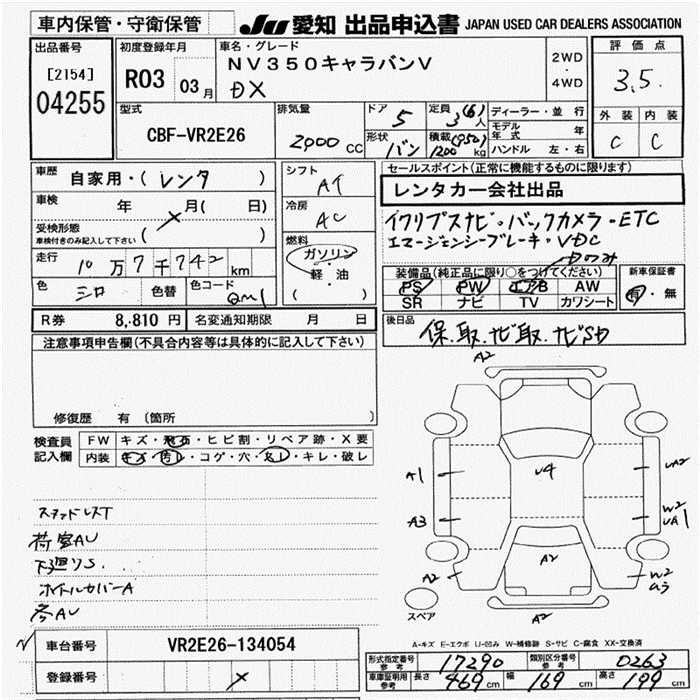 車内保管・守衛保管
JU 愛知 出品申込書 JAPAN USED CAR DEALERS ASSOCIATION
出品番号
[2154]
04255
初度登録年月
R03 03月
車名・グレード
NV350キャラバンV
DX
2WD
・
4WD
評価点
3.5
外装 内装
C C
型式
CBF-VR2E26
排気量
2000 cc
ドア
5
形状
バン
定員
3(6)人
積載(950)
1200 kg
ディーラー・並行
モデル年式 年
ハンドル 左・右
車歴
自家用・(レンタ)
車検
年 月( 日)
受検形態
車検付きのみ記入して下さい ( )
走行
10万7千742km
色
シロ
色替
色コード
QM1
シフト
AT
冷房
AC
燃料
ガソリン
軽・油
( )
セールスポイント(正常に機能するものに限ります)
レンタカー会社出品
イクリプスナビ・バックカメラ・ETC
エマージェンシーブレーキ・VDC
のみ
装備品(純正品に限り○をつけてください)
PS PW エアB AW
SR ナビ TV カワシート
新車保証書
有・無
R券 8,810円 名変通知期限 月 日
後日品
保.取.ナビ取.ナビSD
注意事項申告欄(不具合内容等は具体的に記入して下さい)
修復歴 有 (箇所
検査員
記入欄
FW キズ・飛石・ヒビ割・リペア跡・X要
内装 キズ・汚レ・コゲ・穴・スレ・キレ・破レ
荷室AU
下廻りS
ホイルカバーA
A2
A1
A3
A2
U4
A2
A2
UA2
W2
UA1
W2
ムラ
スペア
A-キズ E-エクボ U-凹み W-補修跡 S-サビ C-腐食 XX-交換済
車台番号 VR2E26-134054
登録番号
型式指定番号 参考 17290
類別区分番号 参考 0263
車庫証明用 参考 長さ 469cm 幅 169cm 高さ 199cm